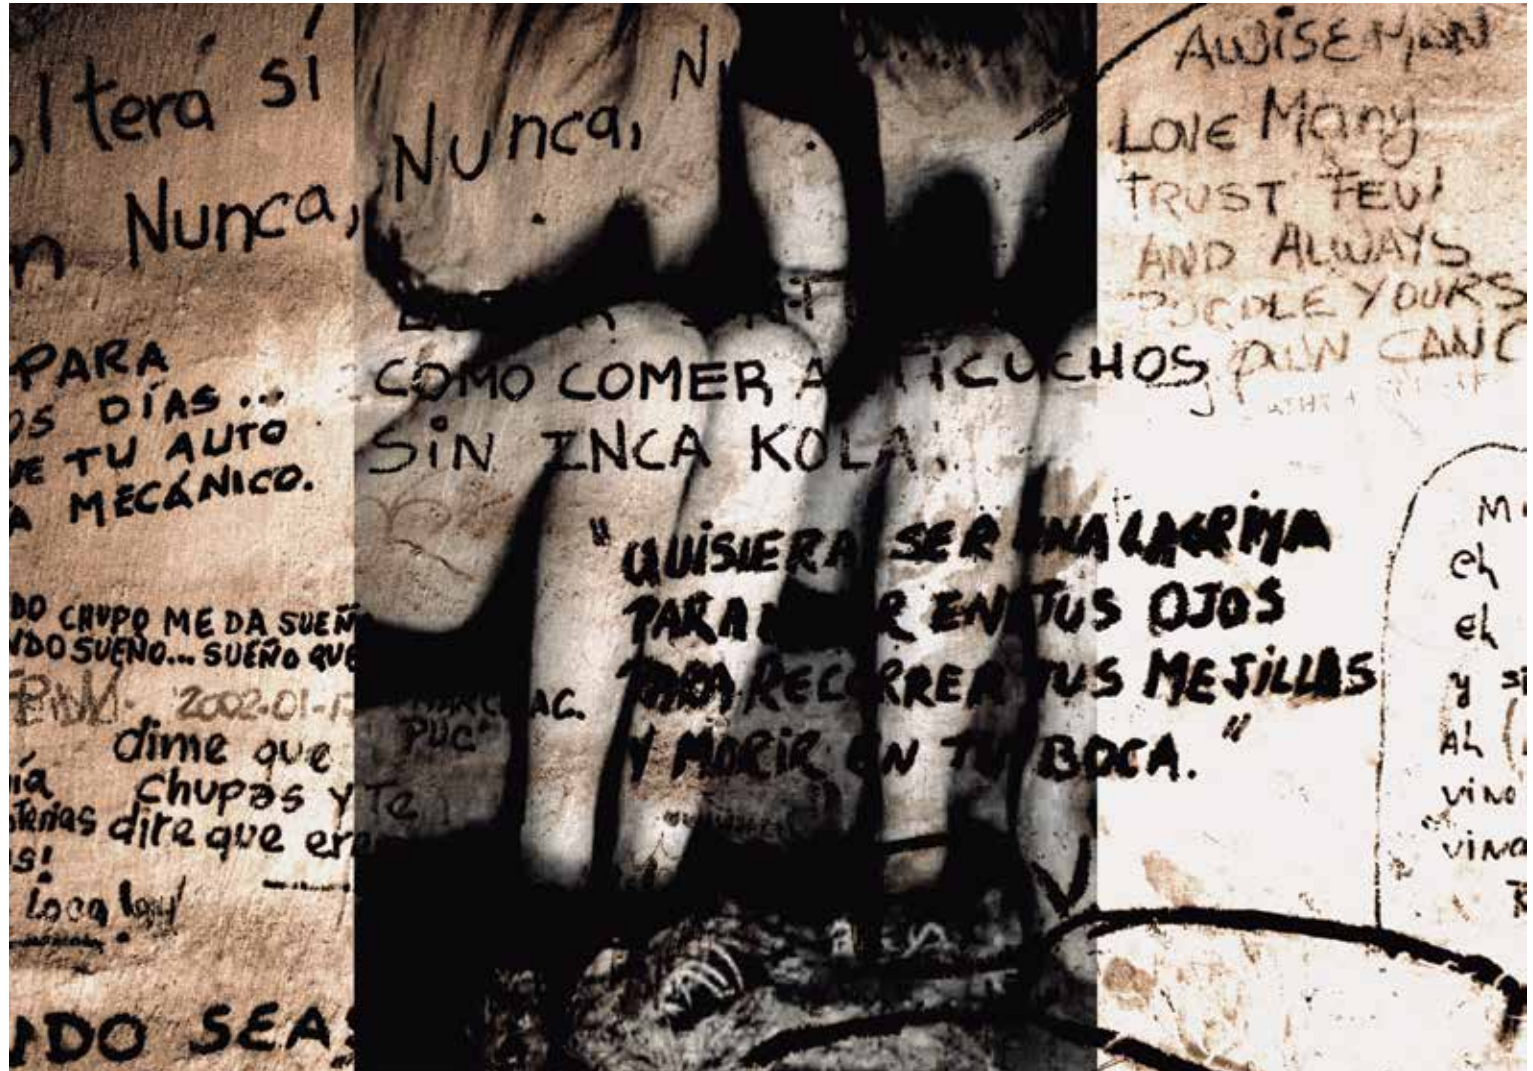 lterá sí
Nunca, Nunca,
PARA
OS DÍAS...
UE TU AUTO
A MECÁNICO.
DO CHUPO ME DA SUEÑ
NDO SUEÑO... SUEÑO QUE
2002-01-17
dime que
ía chupas y Te
terias dire que ere
s!
Loca
NDO SEAS
COMO COMER A TICUCHOS
SiN INCA KOLA!
"QUISIERA SER UNA LAGRIMA
PARA EN TUS OJOS
PARA RECORRER TUS MEJILLAS
Y MORIR EN TU BOCA."
MARC AC.
PUC"
A WISE MAN
LOVE Many
TRUST FEW
AND ALWAYS
YOURS
OWN CANO
M
eh
eh
y si
AL
vino
vino